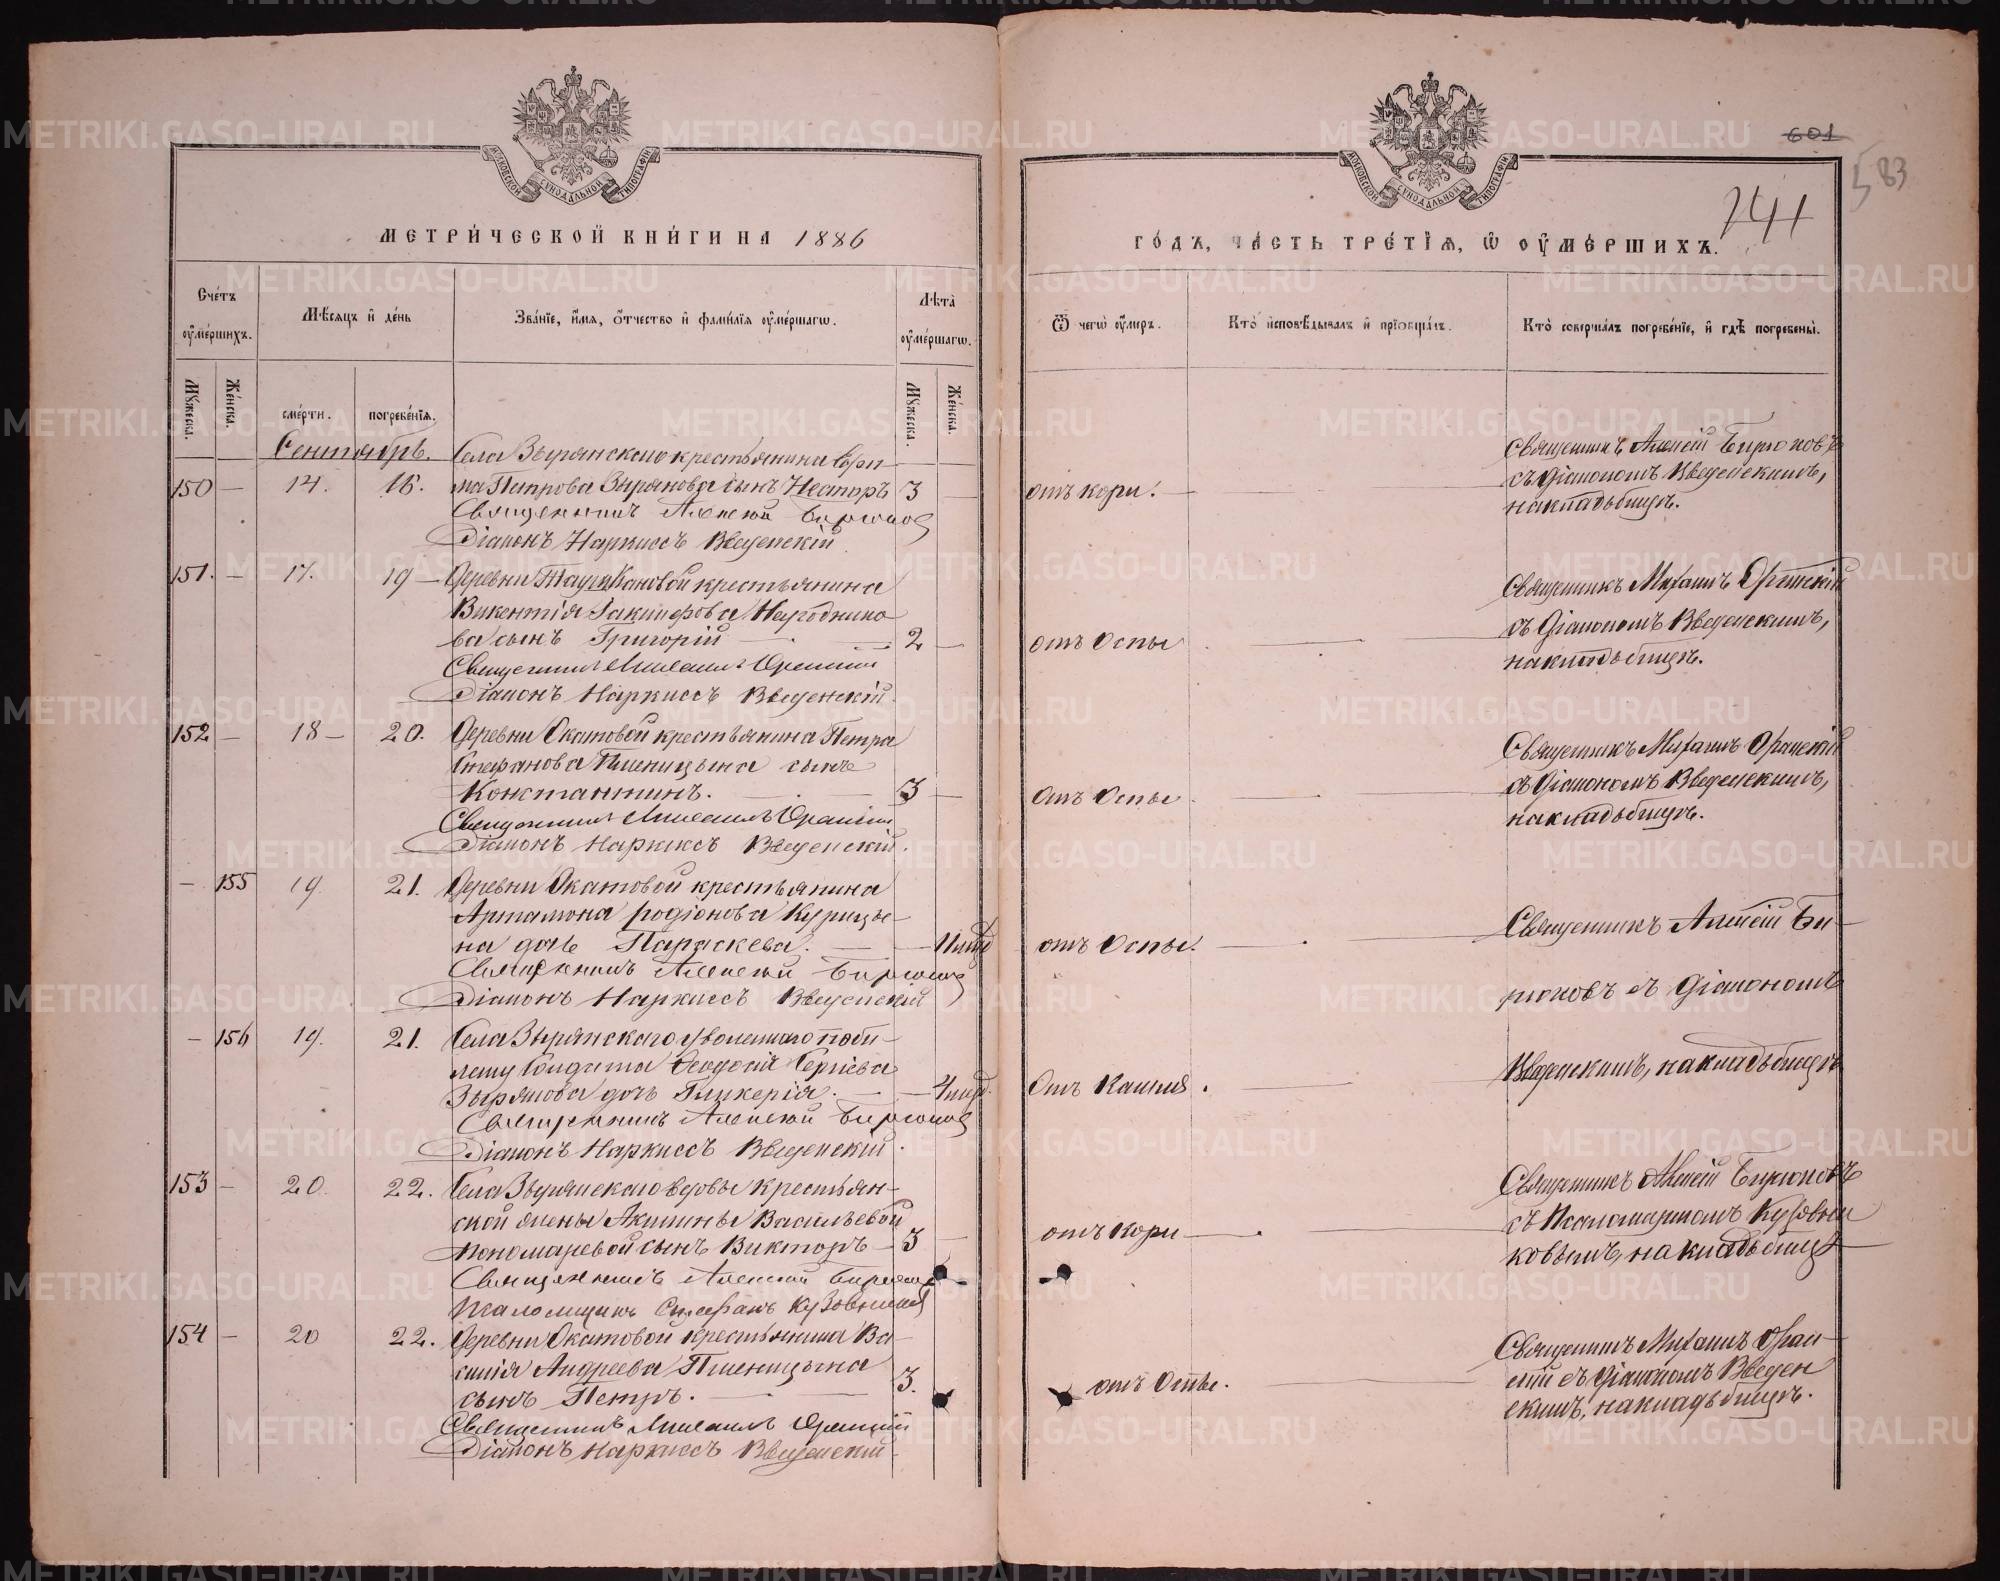 МЕТРИЧЕСКОЙ КНИГИ НА 1886
Счетъ
оумершихъ.
Мѣсяцъ и день
Званіе, имя, отчество и фамилія оумершагѡ.
Лѣта
оумершагѡ.
Мужеска.
Женска.
смерти.
погребенія.
Мужеска.
Женска.
Сентябрь.
Села Зырянскаго крестьянина
150 — 14. 16. Петрова Зырянова сынъ Несторъ 3 —
Священникъ Алексѣй Бирюков
Діаконъ Наркиссъ Введенскій
151. — 17. 19 — Деревни крестьянина
Викентія
ва сынъ Григорій — 2 —
Священникъ Михаилъ
Діаконъ Наркиссъ Введенскій.
152 — 18 — 20. Деревни Охатовой крестьянина Петра
Стефанова Пшеницына сынъ
Константинъ. — 3 —
Священникъ Михаилъ
Діаконъ Наркиссъ Введенскій.
— 155 19. 21. Деревни Охатовой крестьянина
Артамона Родіонова Курицы-
на дочь Параскева. —
Священникъ Алексѣй Бирюков
Діаконъ Наркиссъ Введенскій
— 156 19. 21. Села Зырянскаго уволеннаго
Сергіева
Зырянова дочь Гликерія. —
Священникъ Алексѣй Бирюков
Діаконъ Наркиссъ Введенскій.
153 — 20. 22. Села Зырянскаго вдовы крестьян-
ской жены Акилины Васильевой
Пономаревой сынъ Викторъ — 3 —
Священникъ Алексѣй Бирюков
Псаломщикъ Стефанъ Кузовников
154 — 20 22. Деревни Охатовой крестьянина Ва-
силія Андреева Пшеницына
сынъ Петръ. — 3.
Священникъ Михаилъ
Діаконъ Наркиссъ Введенскій
601
583
241
ГОДЪ, ЧАСТЬ ТРЕТІЯ, Ѡ ОУМЕРШИХЪ.
Ѿ чегѡ оумеръ.
Кто исповѣдывалъ и пріобщалъ.
Кто совершалъ погребеніе, и гдѣ погребены.
отъ кори. —
Священникъ Алексѣй Бирюковъ
съ діакономъ Введенскимъ,
на кладбищѣ.
отъ Оспы —
Священникъ Михаилъ
съ Діакономъ Введенскимъ,
на кладбищѣ.
отъ Оспы. —
Священникъ Михаилъ
съ Діакономъ Введенскимъ,
на кладбищѣ.
отъ Оспы. —
Священникъ Алексѣй Би-
рюковъ съ діакономъ
Введенскимъ, на кладбищѣ
Отъ Кашля. —
отъ Кори —
Священникъ Алексѣй Бирюковъ
съ Псаломщикомъ Кузовни
ковымъ, на кладбищѣ
отъ Оспы. —
Священникъ Михаилъ
съ Діакономъ Введен
скимъ, на кладбищѣ.
METRIKI.GASO-URAL.RU